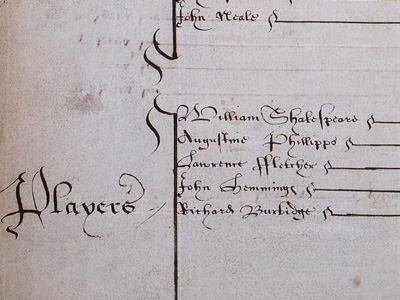 John Neale
William Shakespeare
Augustine Phillipps
Lawrence ffletcher
John Hemminges
Richard Burbidge
Players